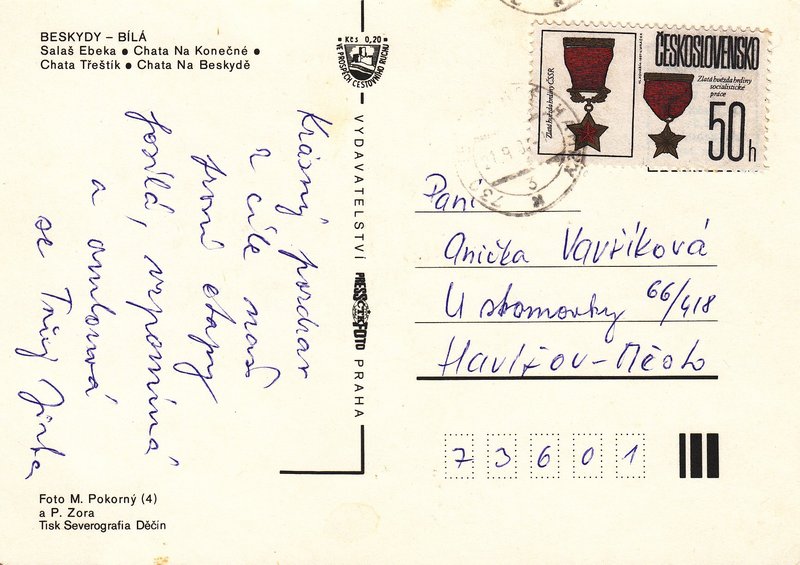 BESKYDY – BÍLÁ
Salaš Ebeka ● Chata Na Konečné ●
Chata Třeštík ● Chata Na Beskydě
Kčs 0,20
VE PROSPĚCH CESTOVNÍHO RUCHU
Krásný pozdrav
z cíle naší
první etapy
posílá, vzpomíná
a
se Tvůj Jirka
VYDAVATELSTVÍ PRESSFOTO PRAHA
ČTK
Zlatá hvězda hrdiny ČSSR
ČESKOSLOVENSKO
Zlatá hvězda hrdiny
socialistické
práce
50h
Paní
Anička Vavříková
U stromovky 66/418
Havířov-Město
73601
Foto M. Pokorný (4)
a P. Zora
Tisk Severografia Děčín